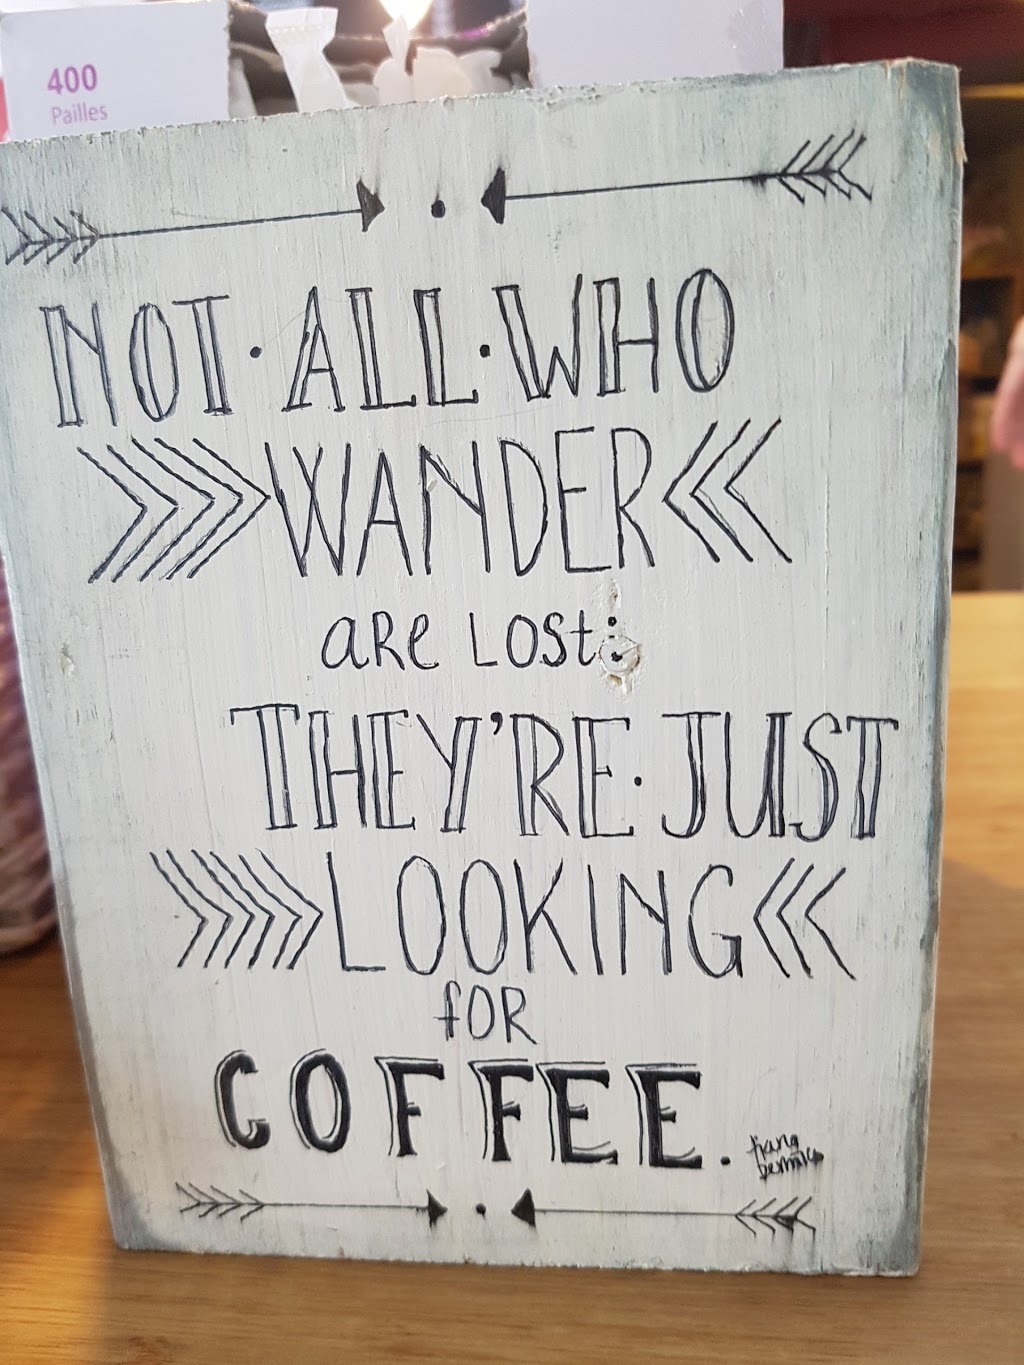 400
Pailles
NOT·ALL·WHO
WANDER
are LOSt:
THEY'RE·JUST
LOOKING
fOR
COFFEE.